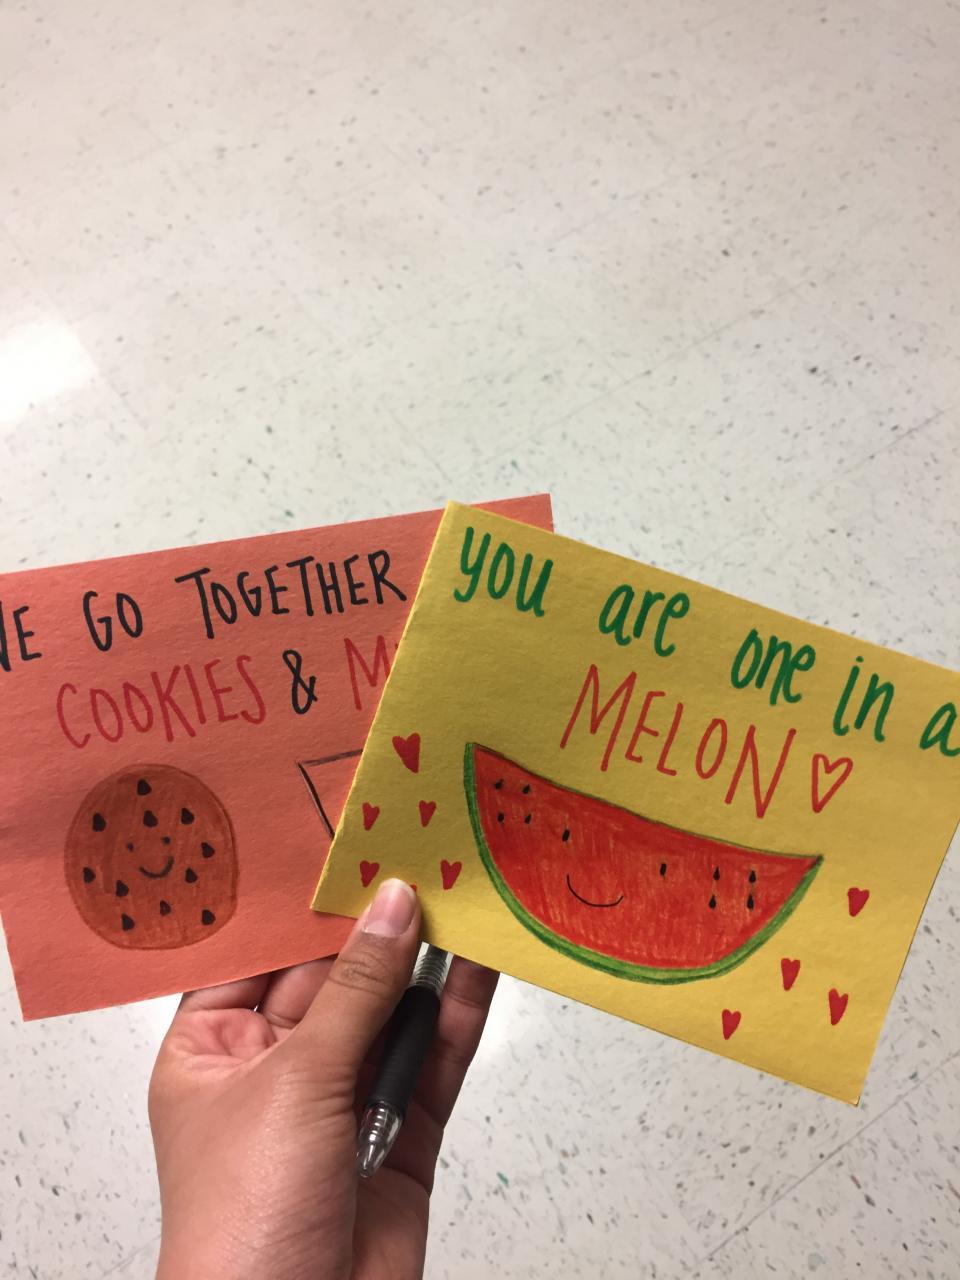 WE GO TOGETHER
COOKIES &
you are one in a
MELON